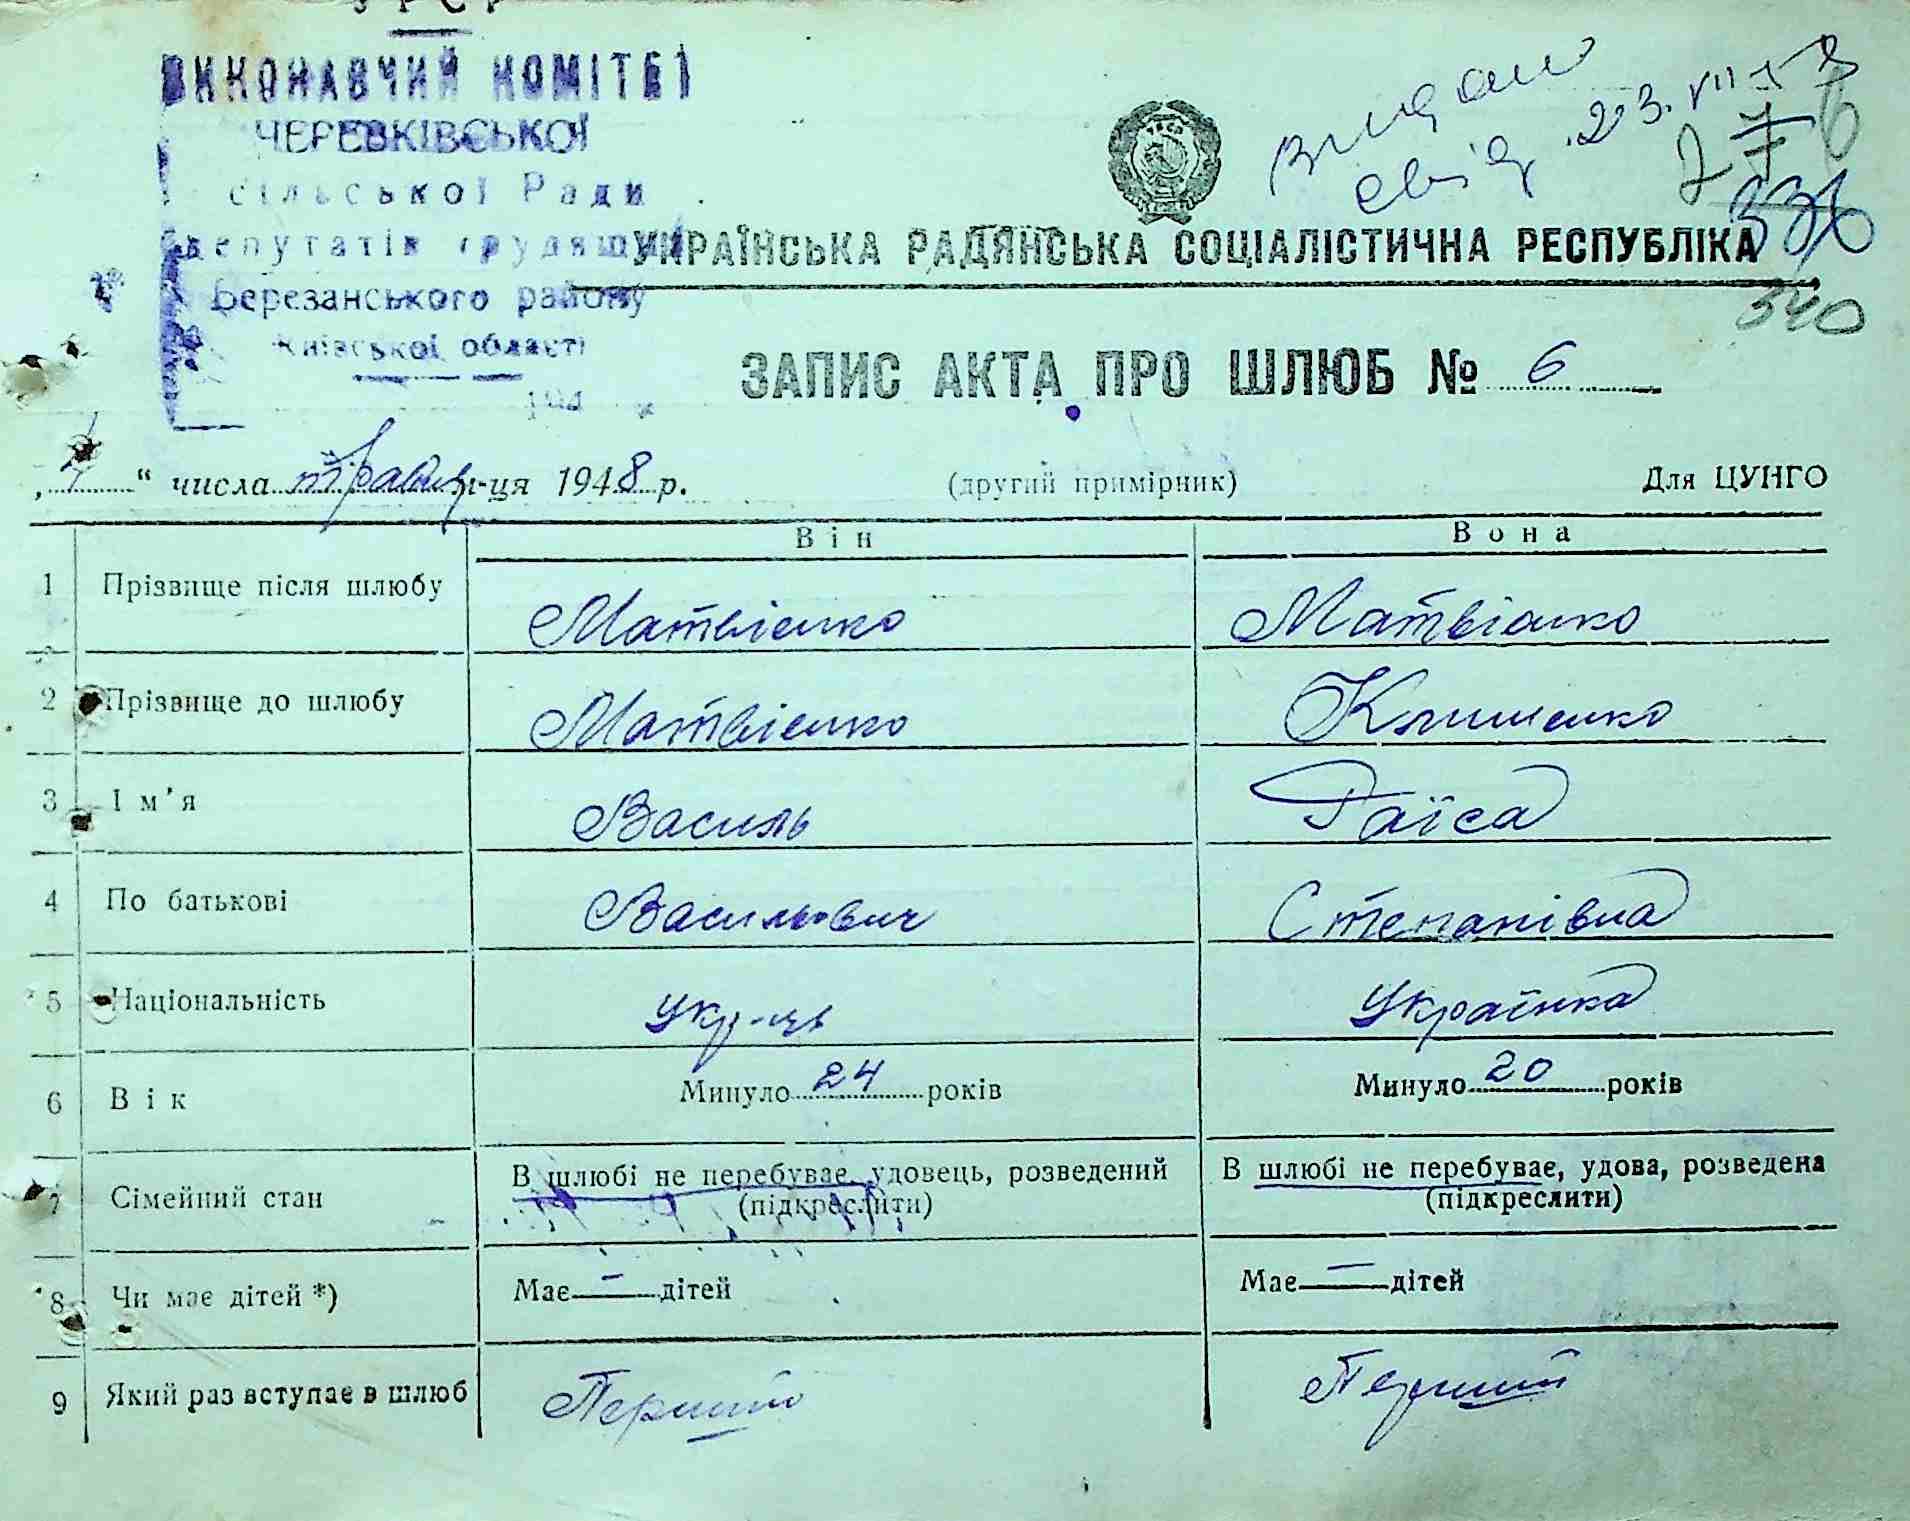 УРСР
ВИКОНАВЧИЙ КОМІТЕТ
ЧЕРЕВКІВСЬКОЇ
сільської Ради
депутатів трудящих
Березанського району
Київської області
194
Видано
свід. 23.VII-53
276
336
340
УКРАЇНСЬКА РАДЯНСЬКА СОЦІАЛІСТИЧНА РЕСПУБЛІКА
ЗАПИС АКТА ПРО ШЛЮБ № 6
" числа травня м-ця 1948 р. (другий примірник) Для ЦУНГО
Він Вона
1 Прізвище після шлюбу Матвієнко Матвієнко
2 Прізвище до шлюбу Матвієнко Клименко
3 Ім'я Василь Раїса
4 По батькові Васильович Степанівна
5 Національність Укр-ць Українка
6 Вік Минуло 24 років Минуло 20 років
7 Сімейний стан В шлюбі не перебуває, удовець, розведений (підкреслити) В шлюбі не перебуває, удова, розведена (підкреслити)
8 Чи має дітей *) Має — дітей Має — дітей
9 Який раз вступає в шлюб Перший Перший